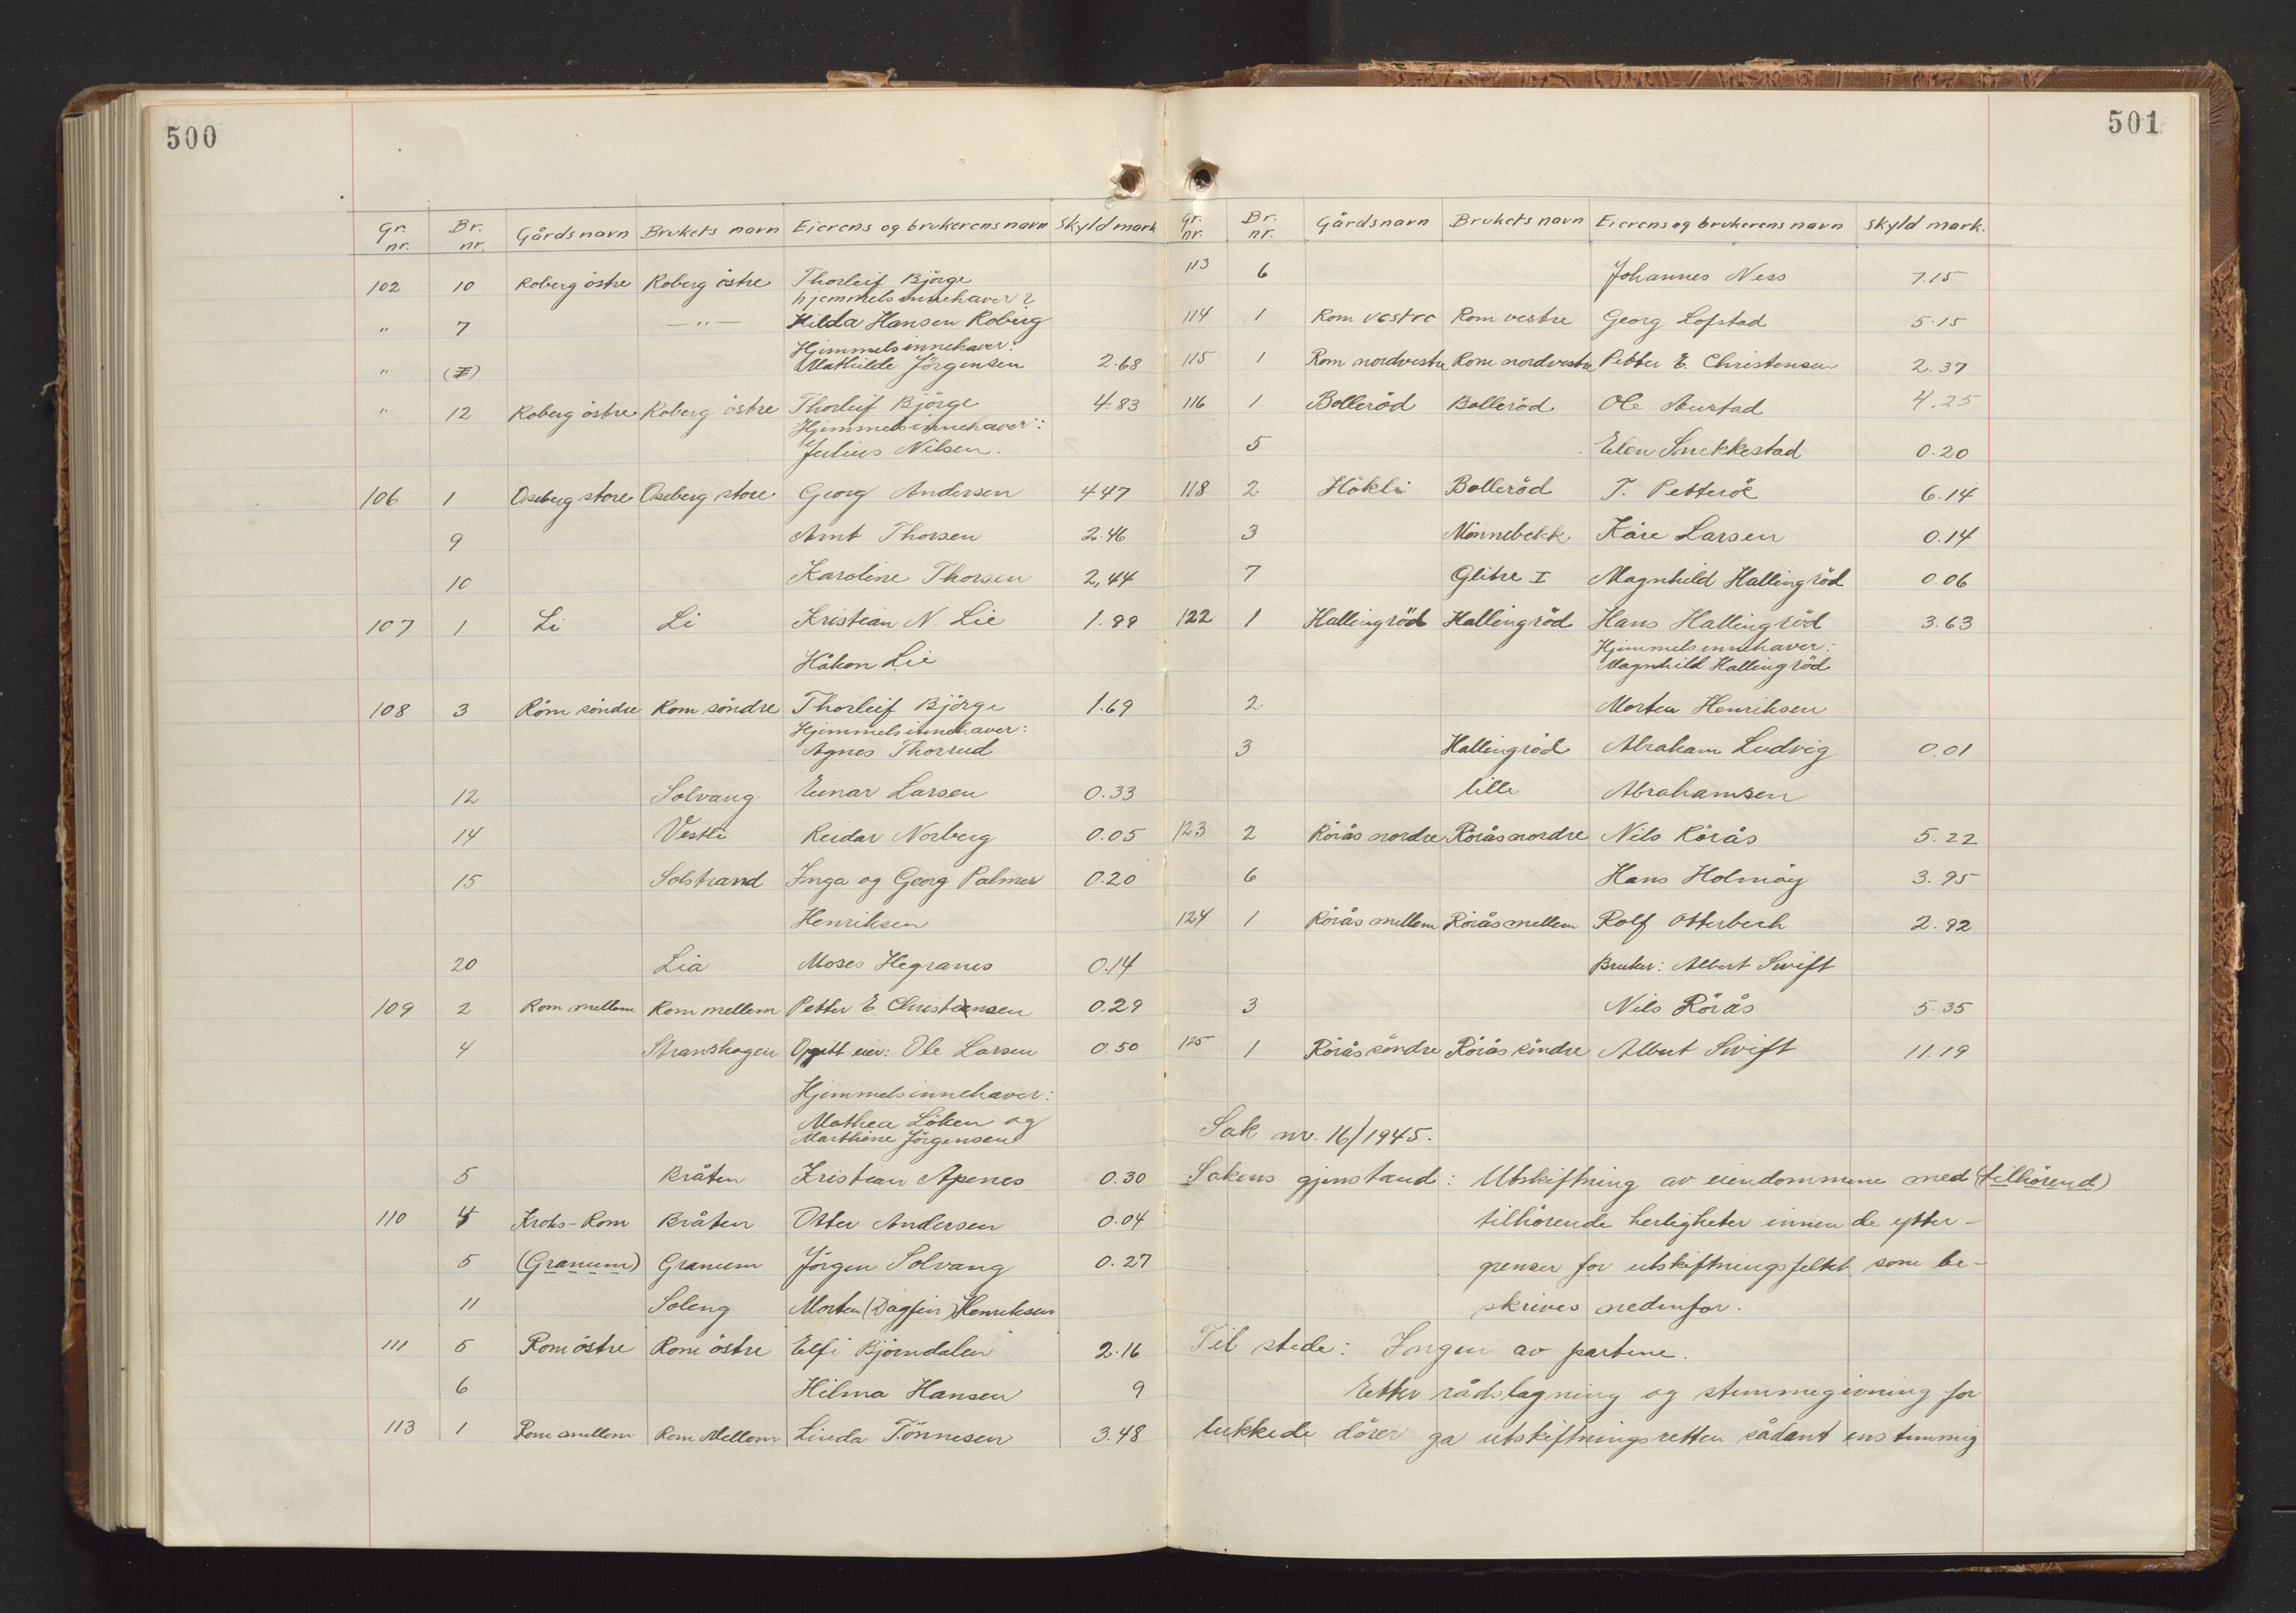 500
Gr. nr. Br. nr. Gårdsnavn Brukets navn Eierens og brukerens navn Skyld mark
102 10 Roberg östre Roberg östre Thorleif Björge
hjemmelsinnehaver?
" 7 —"— Hilda Hansen Roberg
Hjemmelsinnehaver:
" (7) Mathilde Jörgensen 2.68
" 12 Roberg östre Roberg östre Thorleif Björge 4.83
Hjemmelsinnehaver:
Julius Nilsen.
106 1 Oseberg store Oseberg store Georg Andersen 4.47
9 Arnt Thorsen 2.46
10 Karoline Thorsen 2,44
107 1 Li Li Kristian N. Lie 1.99
Håkon Lie
108 3 Rom söndre Rom söndre Thorleif Björge 1.69
Hjemmelsinnehaver:
Agnes Thorrud
12 Solvang Einar Larsen 0.33
14 Vestli Reidar Norberg 0.05
15 Solstrand Inga og Georg Palmer 0.20
Henriksen
20 Lia Moses Hegranes 0.14
109 2 Rom mellem Rom mellem Petter E. Christensen 0.29
4 Stranskogen Opgitt eier: Ole Larsen 0.50
Hjemmelsinnehaver:
Mathea Löken og
Marthine Jörgensen
5 Bråten Kristian Apenes 0.30
110 4 Kroks-Rom Bråten Otter Andersen 0.04
5 (Granum) Granum Jörgen Solvang 0.27
11 Soleng Morten (Dagfin) Henriksen
111 5 Rom östre Rom östre Elfi Björndalen 2.16
6 Hilma Hansen 9
113 1 Rom mellem Rom Mellom Linda Tönnesen 3.48
501
Gr. nr. Br. nr. Gårdsnavn Brukets navn Eierens og brukerens navn Skyld mark.
113 6 Johannes Ness 7.15
114 1 Rom vestre Rom vestre Georg Lofstad 5.15
115 1 Rom nordvestre Rom nordvestre Petter E. Christensen 2.37
116 1 Bolleröd Bolleröd Ole Aurstad 4.25
5 Elen Snekkestad 0.20
118 2 Hökli Bolleröd T. Petteröe 6.14
3 Mönnebekk Kåre Larsen 0.14
7 Glitre I Magnhild Hallingröd 0.06
122 1 Hallingröd Hallingröd Hans Hallingröd 3.63
Hjemmelsinnehaver:
Magnhild Hallingröd
2 Morten Henriksen
3 Hallingröd Abraham Ludvig 0.01
lille Abrahamsen
123 2 Rörås nordre Rörås nordre Nils Rörås 5.22
6 Hans Holmöy 3.95
124 1 Rörås mellem Rörås mellem Rolf Otterbech 2.92
Bruker: Albert Swift
3 Nils Rörås 5.35
125 1 Rörås söndre Rörås söndre Albert Swift 11.19
Sak nr. 16/1945.
Sakens gjenstand: Utskiftning av eiendommene med (tilhörend)
tilhörende herligheter innen de ytter-
grenser for utskiftningsfeltet som be-
skrives nedenfor.
Til stede: Ingen av partene.
Etter rådslagning og stemmegivning for
lukkede dörer ga utskiftningsretten sådant enstemmig